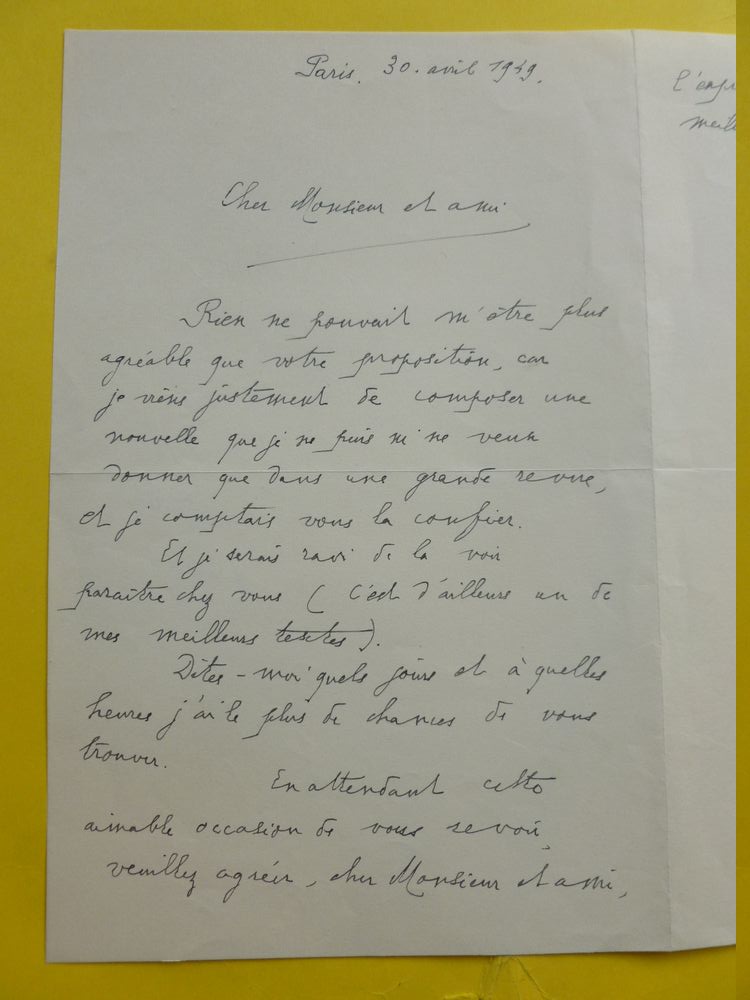 Paris, 30. avril 1949.
Cher Monsieur et ami
Rien ne pouvait m'être plus
agréable que votre proposition, car
je viens justement de composer une
nouvelle que je ne puis ni ne veux
donner que dans une grande revue,
et je comptais vous la confier.
Et je serais ravi de la voir
paraître chez vous ( C'est d'ailleurs un de
mes meilleurs textes ).
Dites-moi quels jours et à quelles
heures j'ai le plus de chances de vous
trouver.
En attendant cette
aimable occasion de vous revoir,
veuillez agréer, cher Monsieur et ami,